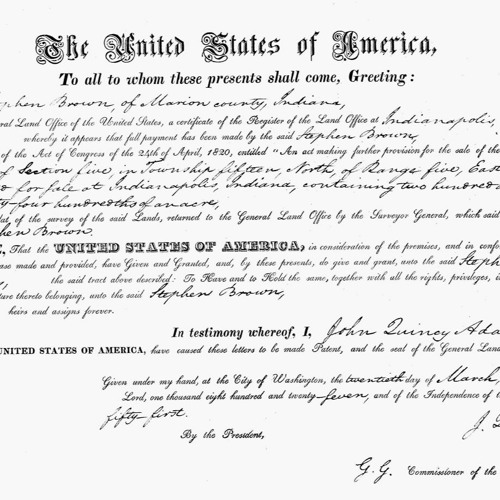 The United States of America,
To all to whom these presents shall come, Greeting:
phen Brown, of Marion county, Indiana,
eral Land Office of the United States, a certificate of the Register of the Land Office at Indianapolis,
whereby it appears that full payment has been made by the said Stephen Brown,
of the Act of Congress of the 24th of April, 1820, entitled "An act making further provision for the sale of the
of Section five, in Township fifteen, North, of Range five, East
d for sale at Indianapolis, Indiana, containing two hundred
ty four hundredths of an acre,
lat of the survey of the said Lands, returned to the General Land Office by the Surveyor General, which said
hen Brown.
E, That the UNITED STATES OF AMERICA, in consideration of the premises, and in confor
ase made and provided, have Given and Granted, and, by these presents, do give and grant, unto the said Steph
the said tract above described: To Have and to Hold the same, together with all the rights, privileges, i
ture thereto belonging, unto the said Stephen Brown,
heirs and assigns forever.
In testimony whereof, I, John Quincy Ada
UNITED STATES OF AMERICA, have caused these letters to be made Patent, and the seal of the General Lan
Given under my hand, at the City of Washington, the twentieth day of March,
Lord, one thousand eight hundred and twenty-seven, and of the Independence of t
fifty first.
By the President,
J.
G. G. Commissioner of the